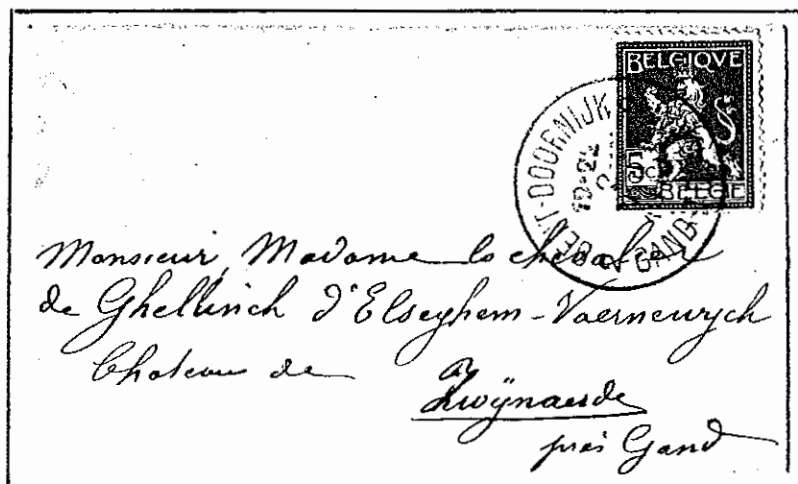 BELGIQVE
5c
BELGIE
GENT-DOORNIJK
GAND
Monsieur, Madame le chevalier
de Ghellinck d'Elseghem-Vaernewyck
Chateau de
Zwÿnaerde
près Gand